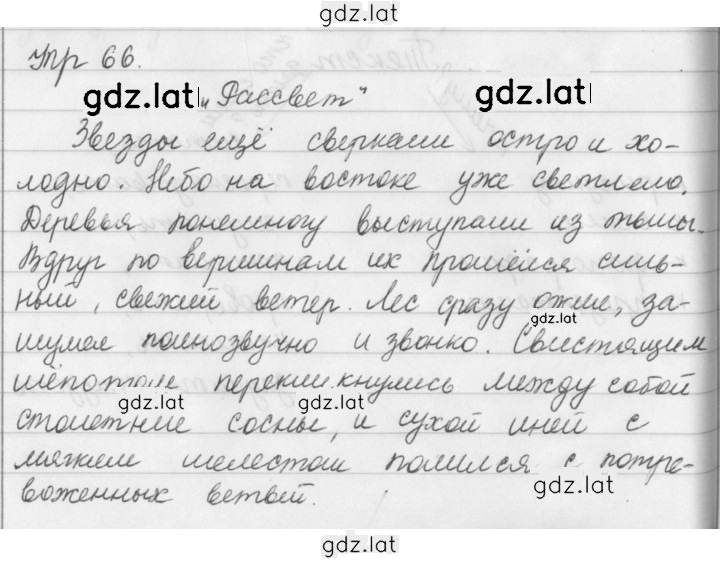 gdz.lat
Упр 66.
gdz.lat gdz.lat
"Рассвет"
Звезды ещё сверкали остро и хо-
лодно. Небо на востоке уже светлело.
Деревья понемногу выступали из тьмы.
Вдруг по вершинам их прошёлся силь-
ный, свежий ветер. Лес сразу ожил, за-
gdz.lat
шумел полнозвучно и звонко. Свистящим
шёпотом перекликнулись между собой
gdz.lat gdz.lat
столетние сосны, и сухой иней с
мягким шелестом полился с потре-
gdz.lat
воженных ветвей.
gdz.lat